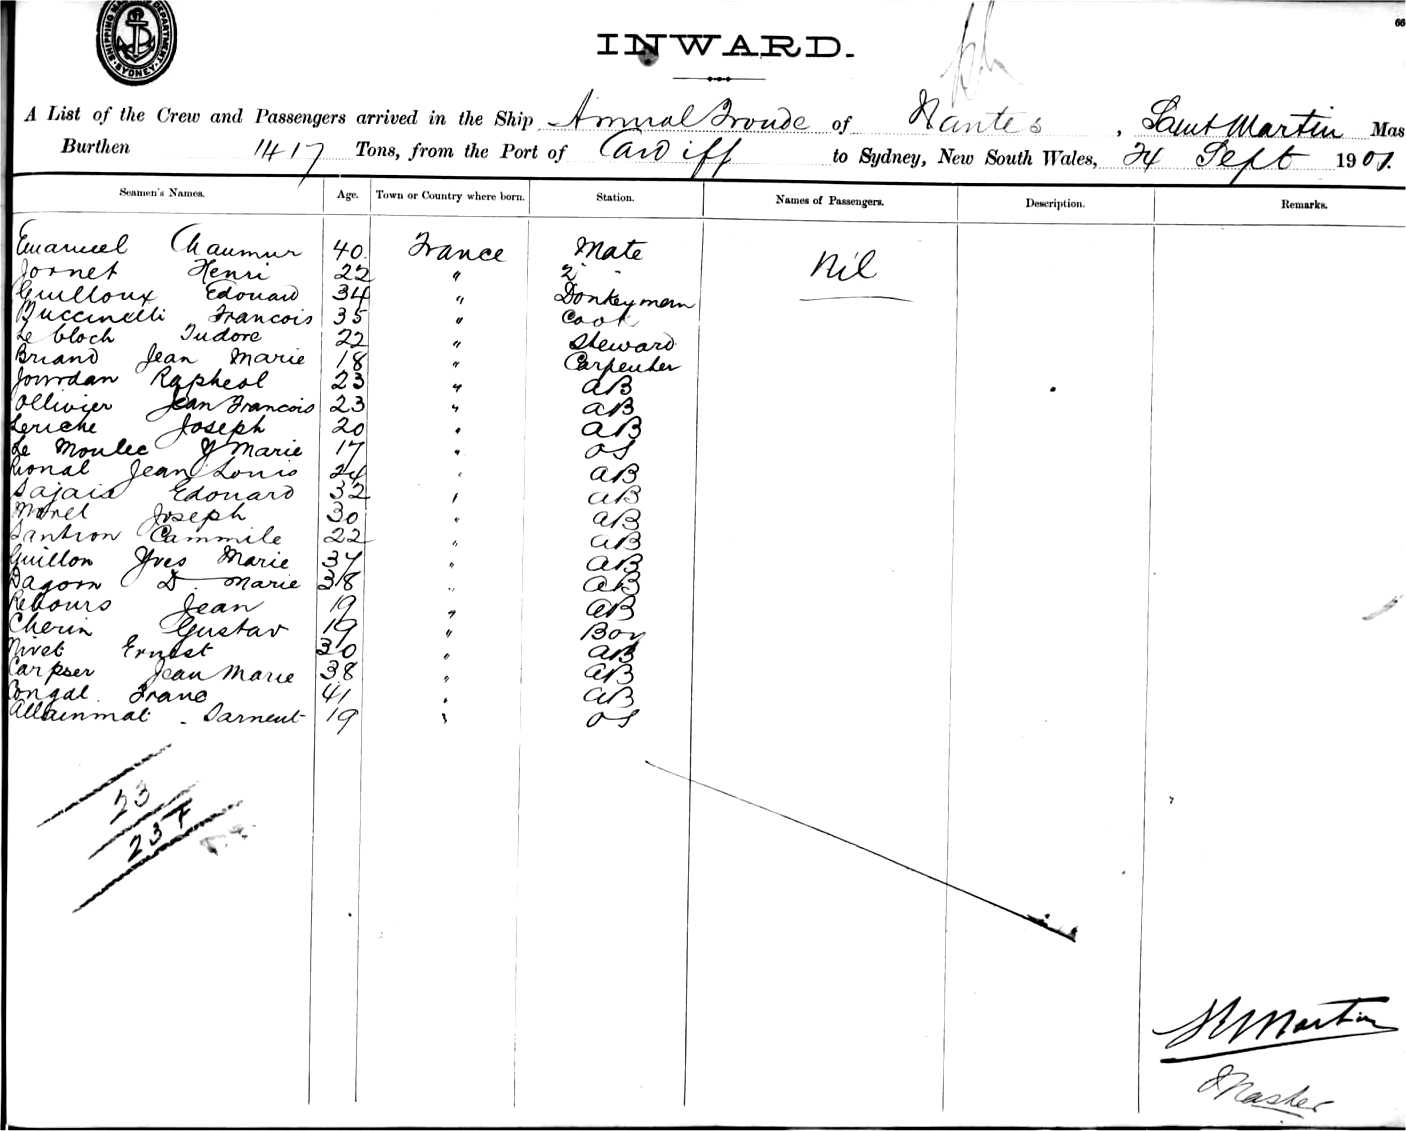 SHIPPING MASTER'S DEPARTMENT
SYDNEY
66
INWARD.
A List of the Crew and Passengers arrived in the Ship Amiral Troude of Nantes, Saint Martin Mas
Burthen 1417 Tons, from the Port of Cardiff to Sydney, New South Wales, 24 Sept 1901.
Seamen's Names. Age. Town or Country where born. Station. Names of Passengers. Description. Remarks.
Emanuel Chaumur 40 France Mate Nil
Jornet Henri 22 " 2 "
Guilloux Edouard 34 " Donkeyman
Buccinelli Francois 35 " Cook
Le bloch Tudore 22 " Steward
Briand Jean Marie 18 " Carpenter
Jourdan Rapheal 23 " AB
Ollivier Jean Francois 23 " AB
Leriche Joseph 20 " AB
Le Moulec Y Marie 17 " OS
Jean Louis 24 " AB
Dajais Edouard 32 " AB
Morel Joseph 30 " AB
Santron Cammile 22 " AB
Guillon Yves Marie 37 " AB
Dagorn D. Marie 38 " AB
Rebours Jean 19 " AB
Cherin Gustav 19 " Boy
Nivet Ernest 30 " AB
Carpser Jean Marie 38 " AB
Congal Franc 41 " AB
Allainmat 19 " OS
23
23 F
Martin
Master